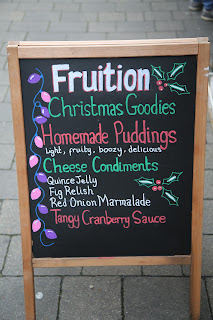 Fruition
Christmas Goodies
Homemade Puddings
light, fruity, boozy, delicious
Cheese Condiments
Quince Jelly
Fig Relish
Red Onion Marmalade
Tangy Cranberry Sauce